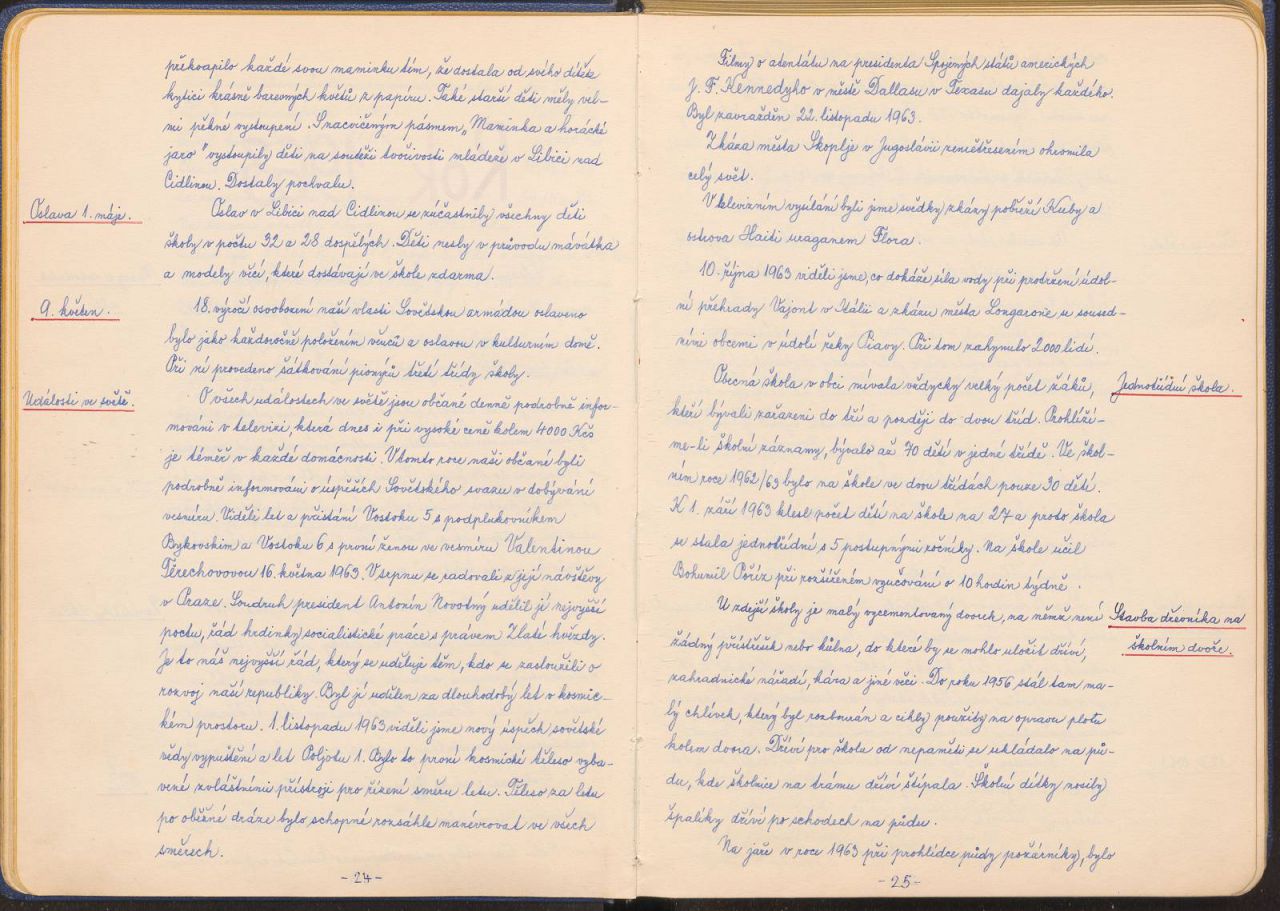 překvapilo každé svou maminku tím, že dostala od svého dítěte
kytici krásně barevných květů z papíru. Také starší děti měly vel-
mi pěkné vystoupení. S nacvičeným pásmem „Maminka a horácké
jaro" vystoupily děti na soutěži tvořivosti mládeže v Libici nad
Cidlinou. Dostaly pochvalu.
Oslava 1. máje.
Oslav v Libici nad Cidlinou se zúčastnily všechny děti
školy v počtu 32 a 28 dospělých. Děti nesly v průvodu mávátka
a modely věcí, které dostávají ve škole zdarma.
9. květen.
18. výročí osvobození naší vlasti Sovětskou armádou oslaveno
bylo jako každoročně položením věnců a oslavou v kulturním domě.
Při ní provedeno šátkování pionýrů třetí třídy školy.
Události ve světě.
O všech událostech ve světě jsou občané denně podrobně infor-
mováni v televizi, která dnes i při vysoké ceně kolem 4000 Kčs
je téměř v každé domácnosti. V tomto roce naši občané byli
podrobně informováni o úspěších Sovětského svazu v dobývání
vesmíru. Viděli let a přistání Vostoku 5 s podplukovníkem
Bykovským a Vostoku 6 s první ženou ve vesmíru Valentinou
Těrechovovou 16. května 1963. V srpnu se radovali z její návštěvy
v Praze. Soudruh president Antonín Novotný udělil jí nejvyšší
poctu, řád hrdinky socialistické práce s právem Zlaté hvězdy.
Je to náš nejvyšší řád, který se uděluje těm, kdo se zasloužili o
rozvoj naší republiky. Byl jí udělen za dlouhodobý let v kosmic-
kém prostoru. 1. listopadu 1963 viděli jsme nový úspěch sovětské
vědy vypuštění a let Poljotu 1. Bylo to první kosmické těleso vyba-
vené zvláštními přístroji pro řízení směru letu. Těleso za letu
po oběžné dráze bylo schopné rozsáhle manévrovat ve všech
směrech.
- 24 -
Filmy o atentátu na presidenta Spojených států amerických
J. F. Kennedyho v městě Dallasu v Texasu dojaly každého.
Byl zavražděn 22. listopadu 1963.
Zkáza města Skoplje v Jugoslávii zemětřesením ohromila
celý svět.
V televizním vysílání byli jsme svědky zkázy pobřeží Kuby a
ostrova Haiti uraganem Flora.
10. října 1963 viděli jsme, co dokáže síla vody při protržení údol-
ní přehrady Vajont v Itálii a zkázu města Longarone se soused-
ními obcemi v údolí řeky Piavy. Při tom zahynulo 2000 lidí.
Jednotřídní škola.
Obecná škola v obci mívala vždycky velký počet žáků,
kteří bývali zařazeni do tří a později do dvou tříd. Prohlíží-
me-li školní záznamy, bývalo až 70 dětí v jedné třídě. Ve škol-
ním roce 1962/63 bylo na škole ve dvou třídách pouze 30 dětí.
K 1. září 1963 klesl počet dětí na škole na 27 a proto škola
se stala jednotřídní s 5 postupnými ročníky. Na škole učil
Bohumil Poříz při rozšířeném vyučování o 10 hodin týdně.
Stavba dřevníka na
školním dvoře.
U zdejší školy je malý vycementovaný dvorek, na němž není
žádný přístřešek nebo kůlna, do které by se mohlo uložit dříví,
zahradnické nářadí, kára a jiné věci. Do roku 1956 stál tam ma-
lý chlívek, který byl rozbourán a cihly použity na opravu plotu
kolem dvora. Dříví pro školu od nepaměti se ukládalo na pů-
du, kde školnice na trámu dříví štípala. Školní dítky nosily
špalíky dříví po schodech na půdu.
Na jaře v roce 1963 při prohlídce půdy požárníky, bylo
- 25 -